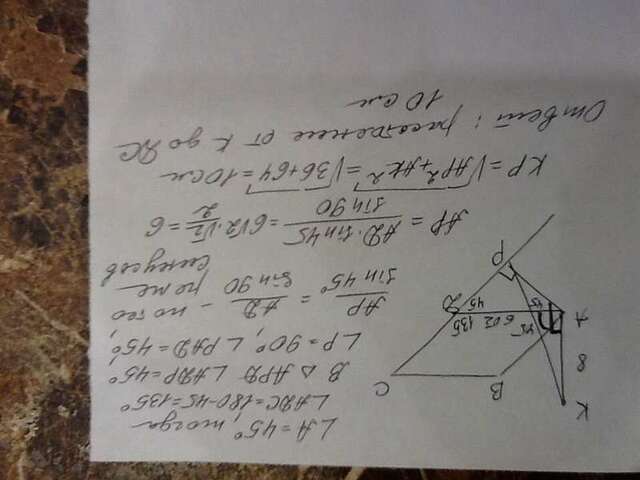 ∠A = 45°, тогда
∠ADC = 180 - 45 = 135°
В △ APD ∠ADP = 45°
∠P = 90°, ∠PAD = 45°,
AP / sin 45° = AD / sin 90 - по тео
реме синусов
AP = AD · sin 45 / sin 90 = 6√2 · √2/2 = 6
KP = √AP² + AK² = √36 + 64 = 10 см
Ответ: расстояние от K до DC
10 см
K
8
A
B
C
D
P
45
135
6√2
45
45